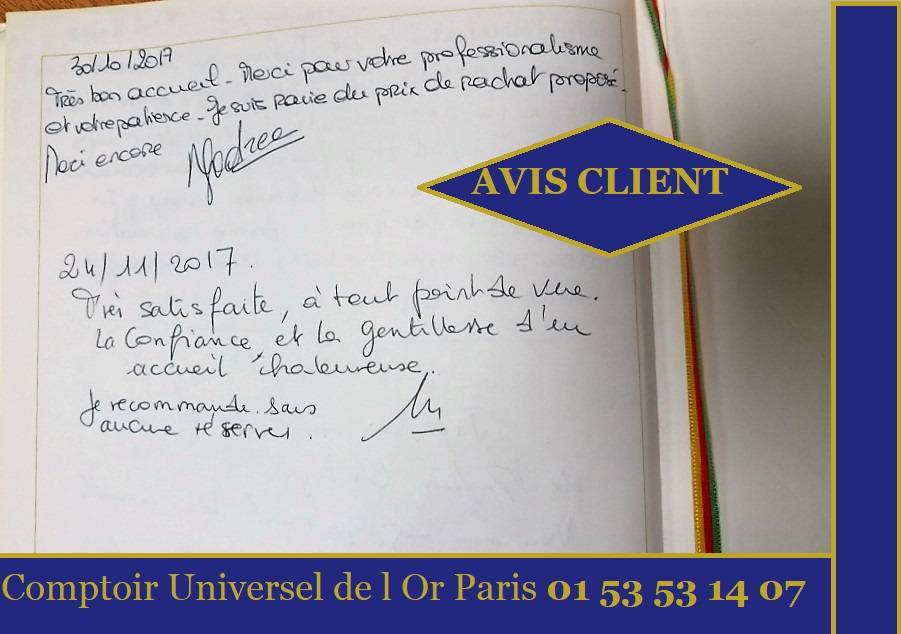 30/10/2017
Très bon accueil - Merci pour votre professionalisme
et votre patience - Je suis ravie du prix de rachat proposé.
Merci encore
AVIS CLIENT
24/11/2017.
Très satisfaite, à tout point de vue.
La Confiance, et la gentillesse d'un
accueil chaleureuse.
Je recommande sans
aucune réserves.
Comptoir Universel de l Or Paris 01 53 53 14 07